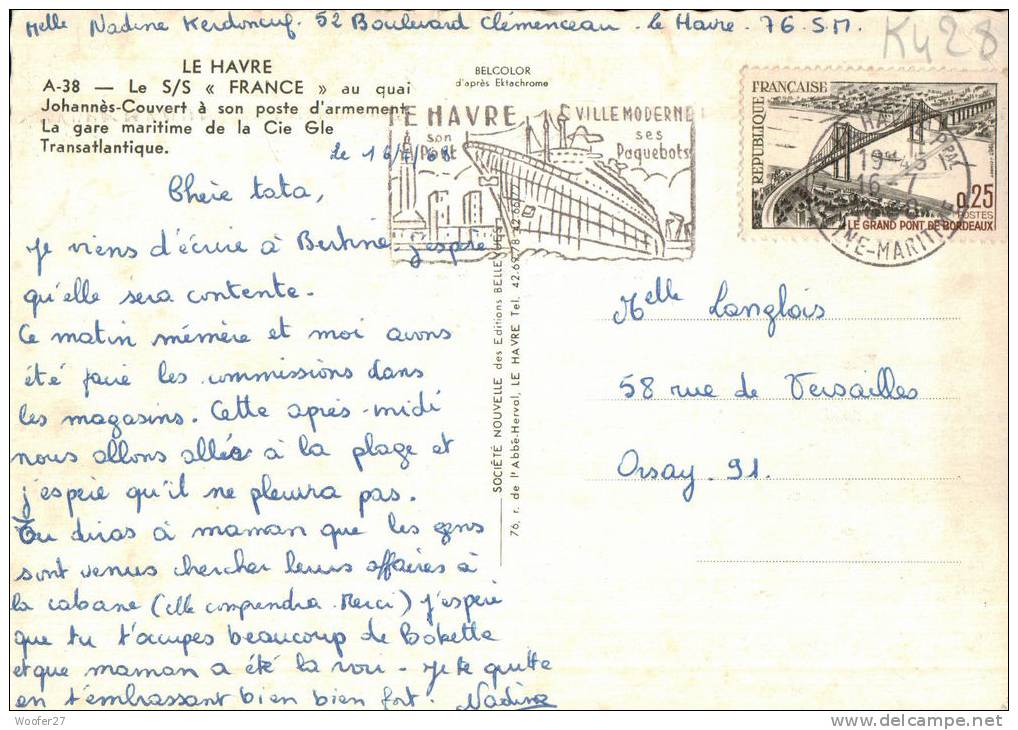 Melle Nadine Kerdoncuf. 52 Boulevard Clémenceau - le Havre - 76. S.M.
K428
LE HAVRE
A-38 — Le S/S « FRANCE » au quai
Johannès-Couvert à son poste d'armement
La gare maritime de la Cie Gle
Transatlantique.
BELCOLOR
d'après Ektachrome
LE HAVRE VILLE MODERNE
son ses
Port Paquebots
RÉPUBLIQUE FRANÇAISE
0,25
POSTES
LE GRAND PONT DE BORDEAUX
19H45
16-7
SEINE-MARITIME
le 16/7/68
Chère tata,
Je viens d'écrire à Bertine j'espère
qu'elle sera contente.
Ce matin mémère et moi avons
été faire les commissions dans
les magasins. Cette après-midi
nous allons allés à la plage et
j'espère qu'il ne pleuvra pas.
Tu diras à maman que les gens
sont venus chercher leurs affaires à
la cabane (elle comprendra. Merci) j'espère
que tu t'occupes beaucoup de Bokette
et que maman a été la voir - Je te quitte
en t'embrassant bien bien fort. Nadine
SOCIÉTÉ NOUVELLE des Editions BELLEVUES
76, r. de l'Abbé-Herval, LE HAVRE Tel. 42.69.78 - 42.66.27
Melle Langlois
58 rue de Versailles
Orsay. 91.
Woofer27
www.delcampe.net